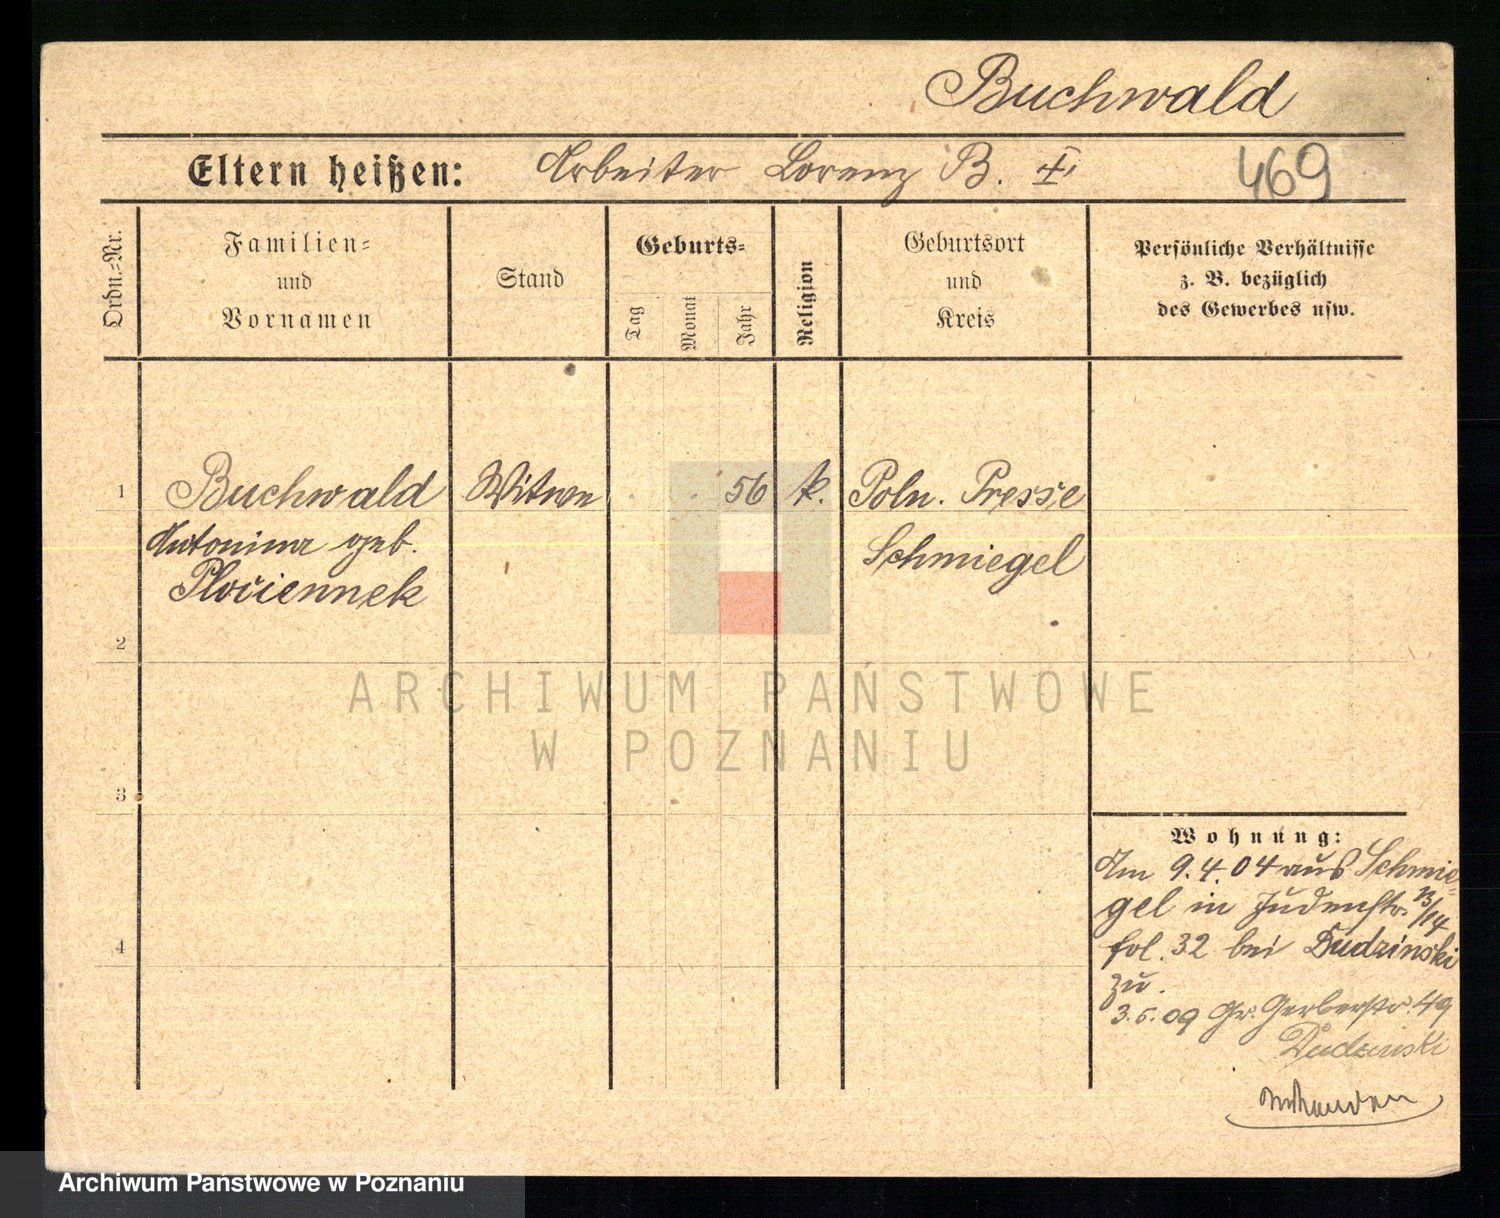 Buchwald
Eltern heißen: Arbeiter Lorenz B. †
469
Ordn.-Nr.
Familien-
und
Vornamen
Stand
Geburts-
Tag
Monat
Jahr
Religion
Geburtsort
und
Kreis
Persönliche Verhältnisse
z. B. bezüglich
des Gewerbes usw.
1 Buchwald Witwe 56 k. Poln. Presse
Antonina geb. Schmiegel
Plociennek
2
3
4
ARCHIWUM PAŃSTWOWE
W POZNANIU
Wohnung:
Am 9.4.04 aus Schmie-
gel in Judenstr. 13/14
fol. 32 bei Dudzinski
zu.
3.5.09 Gr. Gerberstr. 49
Dudzinski
Archiwum Państwowe w Poznaniu